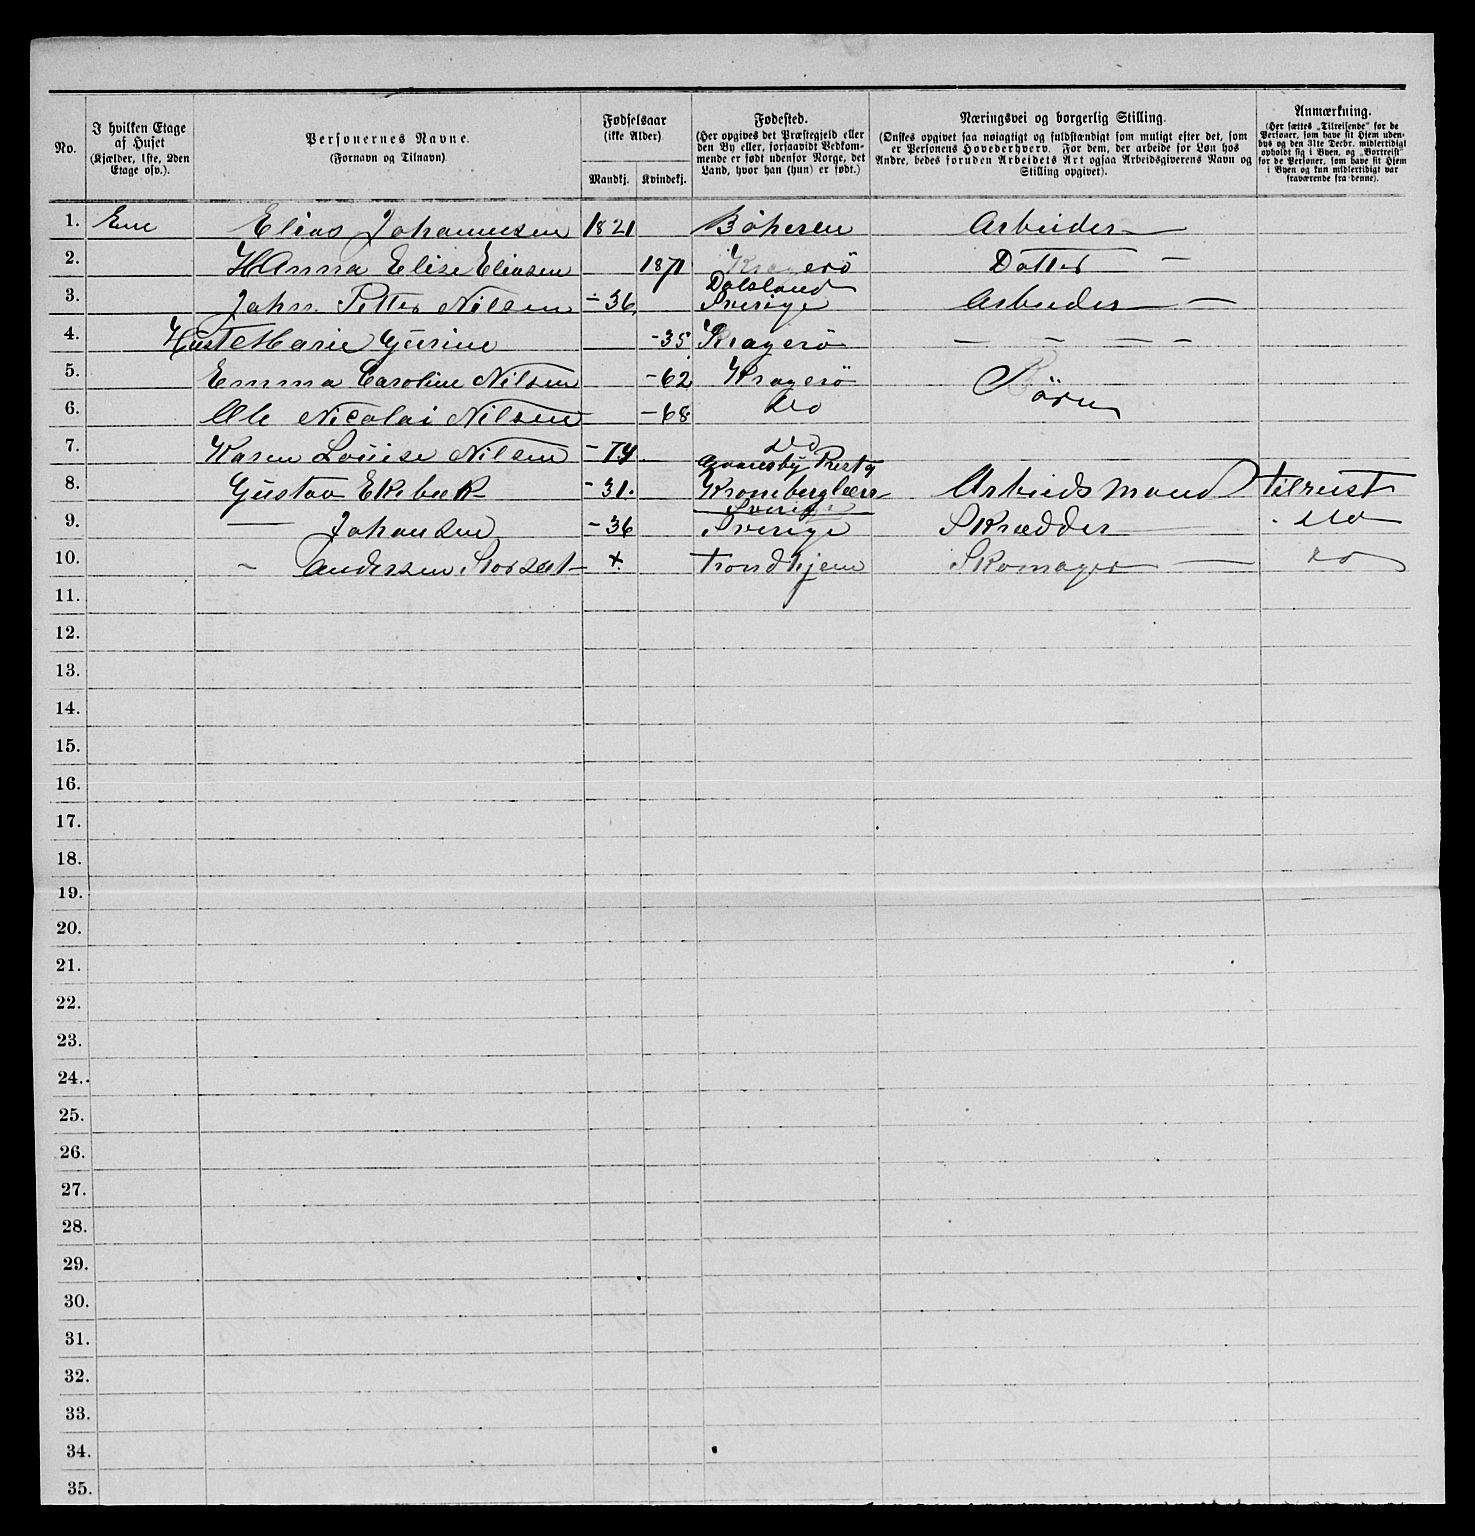 No.
I hvilken Etage af Huset (Kjælder, 1ste, 2den Etage osv.).
Personernes Navne. (Fornavn og Tilnavn).
Fødselsaar (ikke Alder).
Mandkj. Kvindekj.
Fødested. (Her opgives det Præstegjeld eller den By eller, forsaavidt Vedkommende er født udenfor Norge, det Land, hvor han (hun) er født.)
Næringsvei og borgerlig Stilling. (Ønskes opgivet saa nøiagtigt og fuldstændigt som muligt efter det, som er Personens Hovederhverv. For dem, der arbeide for Løn hos Andre, bedes foruden Arbeidets Art ogsaa Arbeidsgiverens Navn og Stilling opgivet).
Anmærkning. (Her sættes „Tilreisende" for de Personer, som have sit Hjem udenbys og den 31te Decbr. midlertidigt opholdt sig i Byen, og „Bortreist" for de Personer, som have sit Hjem i Byen og kun midlertidigt var fraværende fra denne).
1. Elias Johannesen 1821 Arbeider
2. Hanna Elise Eliasen 1871 Kragerö Datter —
3. John Petter Nilsen - 36 Dalsland Sverige Arbeider —
4. Marie Gurine - 35 Kragerö — — — —
5. Emma Caroline Nilsen - 62 Kragerö Börn
6. Ole Nicolai Nilsen - 68 Do
7. Karen Louise Nilsen - 74 Do
8. Gustav Ekebæk - 31. Kroneberglæn Sverige Arbeidsmand tilreist
9. — Johansen - 36 Sverige Skrædder - Do
10. - Andersen Storsæt × Trondhjem Skomager — Do
11.
12.
13.
14.
15.
16.
17.
18.
19.
20.
21.
22.
23.
24.
25.
26.
27.
28.
29.
30.
31.
32.
33.
34.
35.